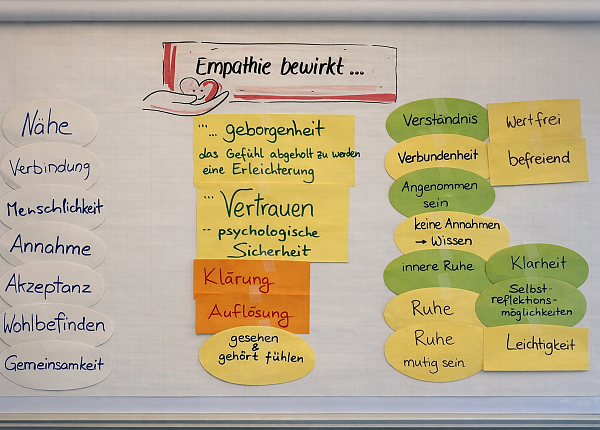 Empathie bewirkt ...
Nähe
Verbindung
Menschlichkeit
Annahme
Akzeptanz
Wohlbefinden
Gemeinsamkeit
... geborgenheit
das Gefühl abgeholt zu werden
eine Erleichterung
... Vertrauen
-- psychologische
Sicherheit
Klärung
Auflösung
gesehen
&
gehört fühlen
Verständnis
Verbundenheit
Angenommen
sein
keine Annahmen
→ Wissen
innere Ruhe
Ruhe
Ruhe
mutig sein
Wertfrei
befreiend
Klarheit
Selbst-
reflektions-
möglichkeiten
Leichtigkeit